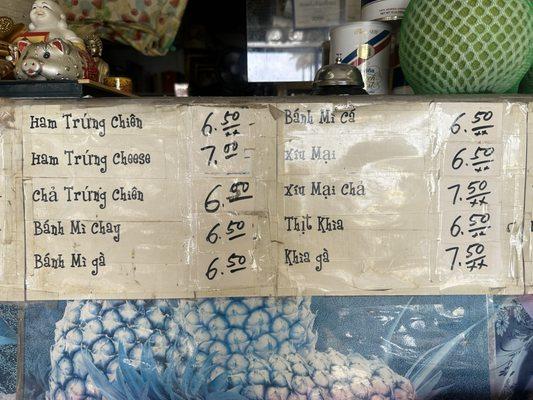 Ham Trứng Chiên 6.50
Ham Trứng Cheese 7.00
Chả Trứng Chiên 6.50
Bánh Mì Chay 6.50
Bánh Mì gà 6.50
Bánh Mì Cá 6.50
Xíu Mại 6.50
Xíu Mại Chả 7.50
Thịt Khìa 6.50
Khìa gà 7.50